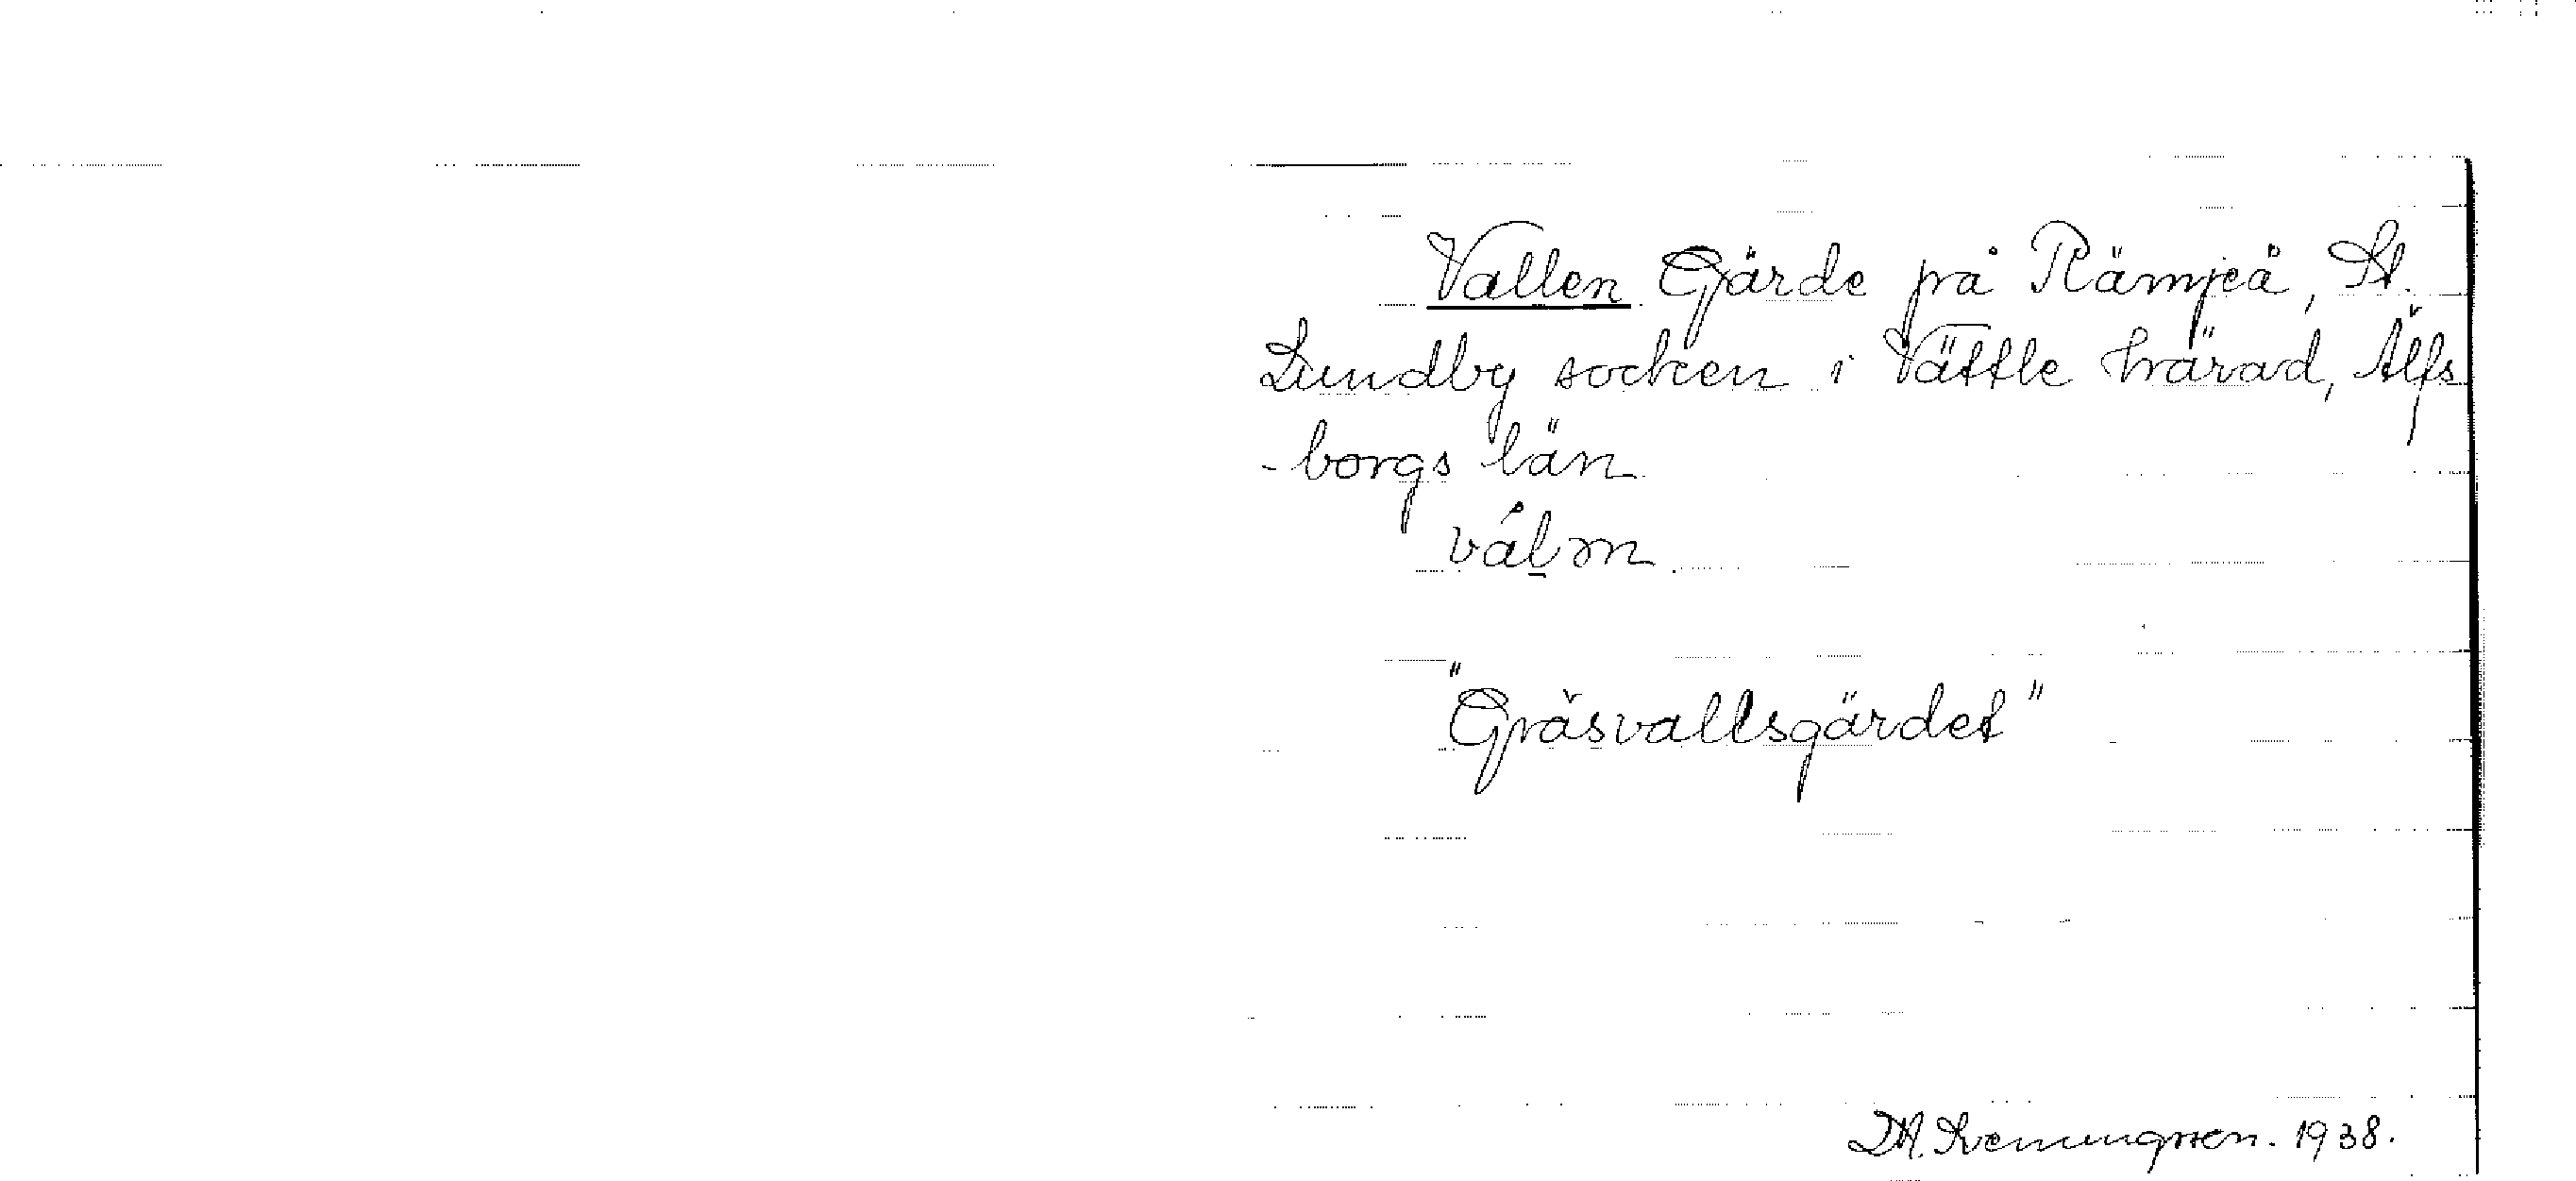 Vallen Gärde på Rämjeå, St.
Lundby socken i Vättle härad, Älfs
-borgs län
válm
"Gräsvallsgärdet"
1938.